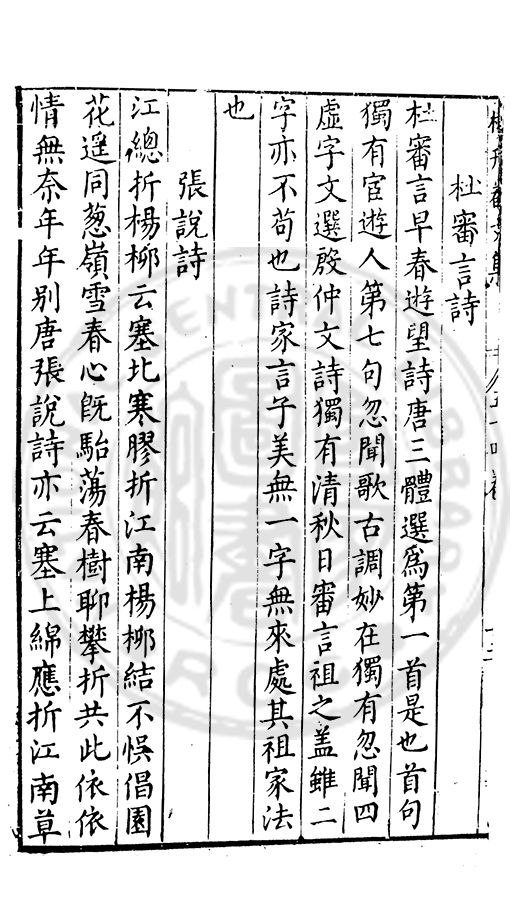 杜審言詩
杜審言早春遊望詩唐三體選爲第一首是也首句
獨有宦遊人第七句忽聞歌古調妙在獨有忽聞四
虛字文選殷仲文詩獨有清秋日審言祖之蓋雖二
字亦不苟也詩家言子美無一字無來處其祖家法
也
張說詩
江總折楊柳云塞北寒膠折江南楊柳結不悞倡園
花遥同葱嶺雪春心旣駘蕩春樹聊攀折共此依依
情無奈年年别唐張說詩亦云塞上綿應折江南草